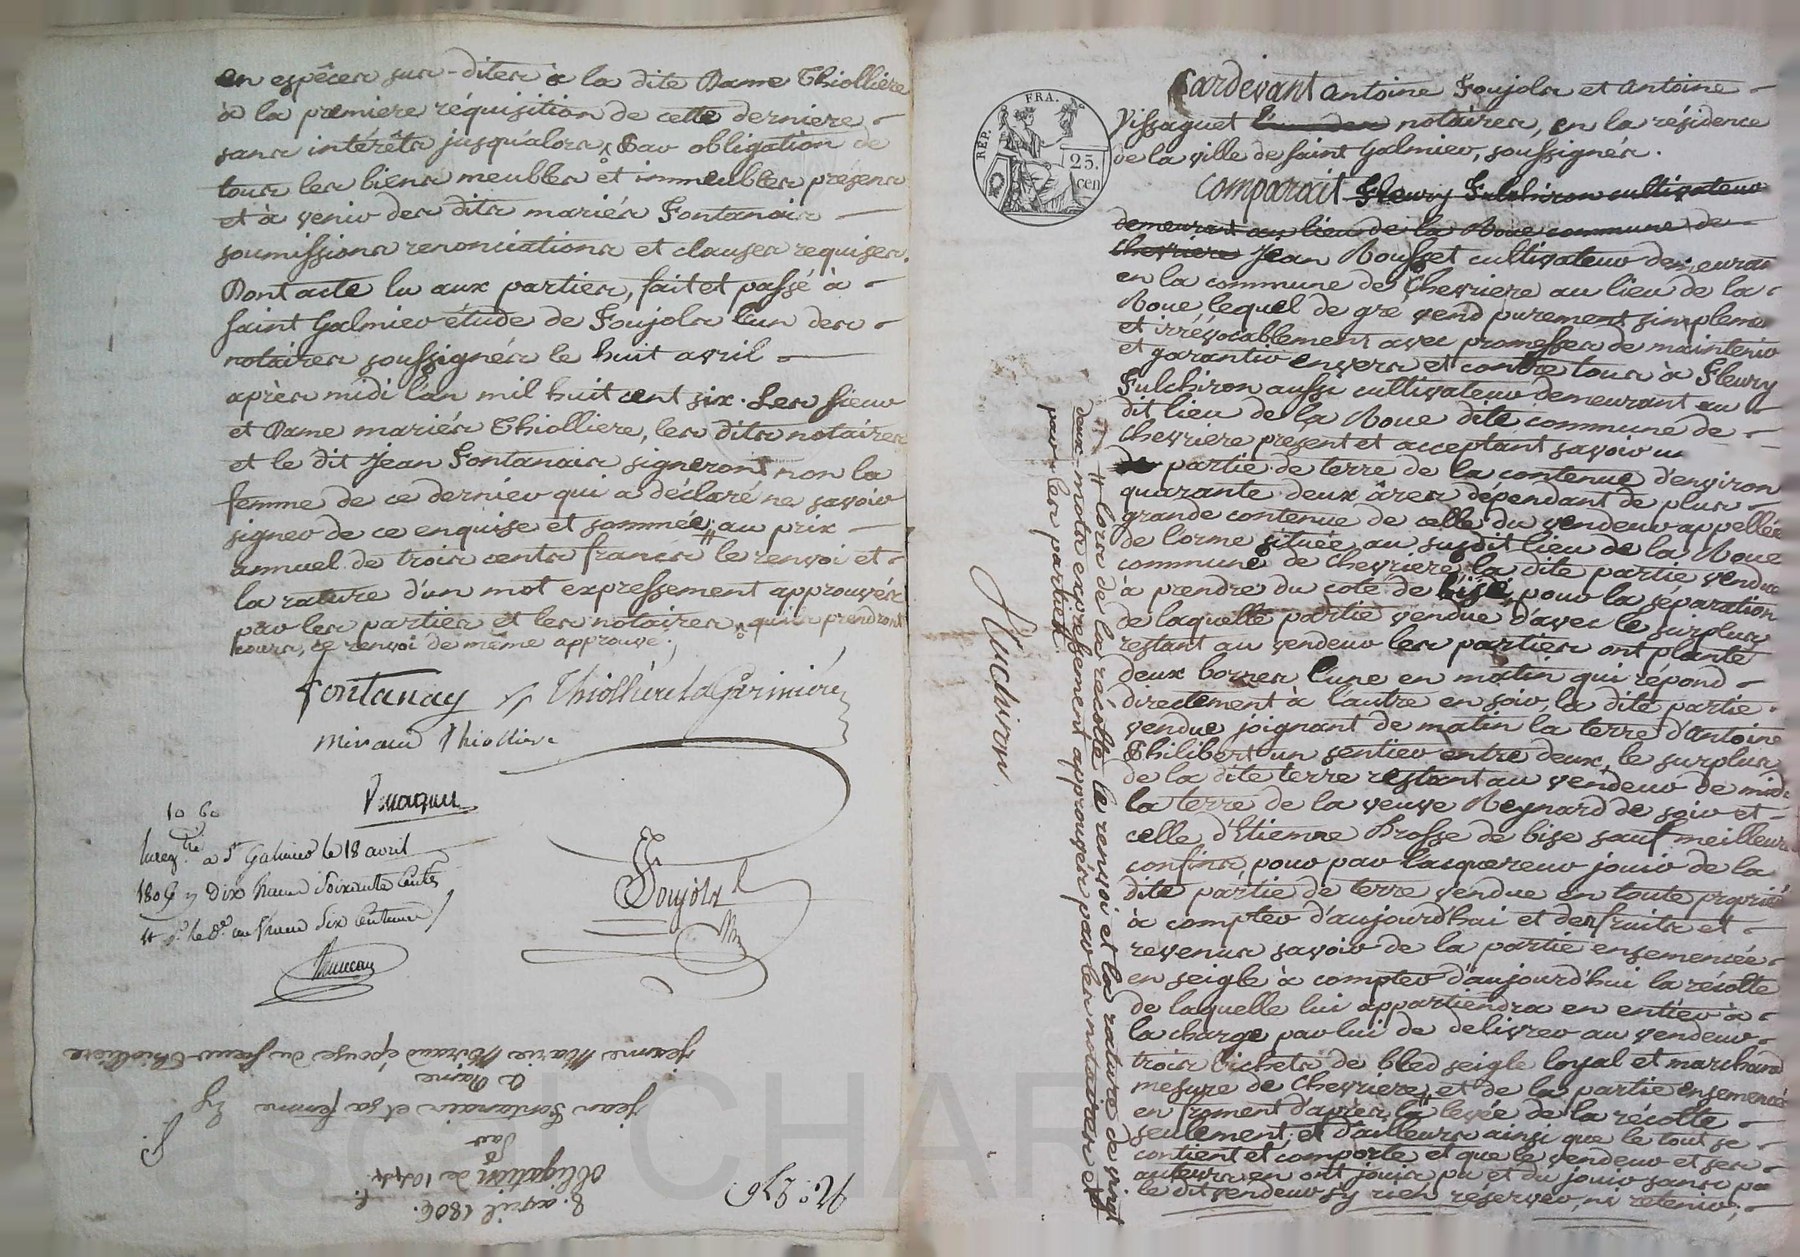 en espêces sus-dites à la dite Dame Thiolliere
à la premiere réquisition de cette derniere
sans intérêts jusqu'alors x Par obligation de
tous les biens meubles et immeubles présens
et à venir des dits mariés Fontanais
soumissions renonciations et clauses requises.
Dont acte lu aux parties, fait et passé à
Saint Galmier étude de Foujols l'un des
notaires soussignés le huit avril
après midi l'an mil huit cent six. Les sieur
et Dame mariés Thiolliere, les dits notaires
et le dit Jean Fontanais signeront non la
femme de ce dernier qui a déclaré ne savoir
signer de ce enquise et sommée, au prix
annuel de trois cents francs # le renvoi et
la rature d'un mot expressement approuvés
par les parties et les notaires, qui prendront
cours, ce renvoi de même approuvé ;
fontanay Thiolliere
Miraud Thiolliere
10 60
a St Galmier le 18 avril
1806 Dix francs Soixante Centes
un franc Six Centimes
Foujols
Jeanne Marie Miraud épouse du sieur Thiolliere
à
Jean Fontanais et sa femme
Par
Obligation de
8. avril 1806.
N.° 276
RÉP. FRA.
25.
cen
Pardevant Antoine Foujols et Antoine
Vissaguet l'un des notaires, en la résidence
de la ville de Saint Galmier, soussignés.
Comparait Fleury Fulchiron cultivateur
demeurant au lieu de la Roue commune de
Chevrieres Jean Rousset cultivateur demeurant
en la commune de Chevriere au lieu de la
Roue lequel de gre vend purement simpleme
et irrévocablement avec promesses de maintenir
et garantir envers et contre tous à Fleury
Fulchiron aussi cultivateur demeurant au
dit lieu de la Roue dite commune de
Chevriere present et acceptant savoir un
partie de terre de la contenue d'environ
quarante deux âres dépendant de plus
grande contenue de celle du vendeur appellée
de l'orme située au susdit lieu de la Roue
commune de Chevriere, la dite partie vendue
à prendre du coté de bise, pour la séparation
de laquelle partie vendue d'avec le surplus
restant au vendeur les parties ont planté
deux bornes l'une en matin qui répond
directement à l'autre en soir, la dite partie
vendue joignant de matin la terre d'Antoine
Philibert un sentier entre deux, le surplus
de la dite terre restant au vendeur de midi
la terre de la veuve Reynard de soir et
celle d'Etienne Brosse de bise sauf meilleurs
confins, pour par l'acquereur jouir de la
dite partie de terre vendue en toute proprieté
à compter d'aujourd'hui et des fruits et
revenus savoir de la partie ensemencée
en seigle à compter d'aujourd'hui la récolte
de laquelle lui appartiendra en entier à
la charge par lui de délivrer au vendeur
trois bichets de bled seigle loyal et marchand
mesure de Chevriere, et de la partie ensemencée
en froment d'après # la levée de la récolte
seulement; et d'ailleurs ainsi que le tout se
contient et comporte et que le vendeur et ses
auteurs en ont jouis pu et du jouir sans pa
le dit vendeur s'y rien reserver, ni retenir;
# lors de la récolte le renvoi et la rature de vingt
deux mots expressement approuvés par les notaires et
par les parties.
fuchiron